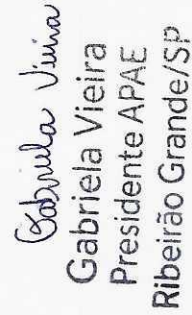 Gabriela Vieira
Gabriela Vieira
Presidente APAE
Ribeirão Grande/SP